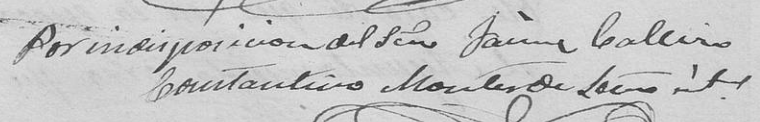 Por indisposicion del Sr Jaime Calleiro
Constantino Montes de